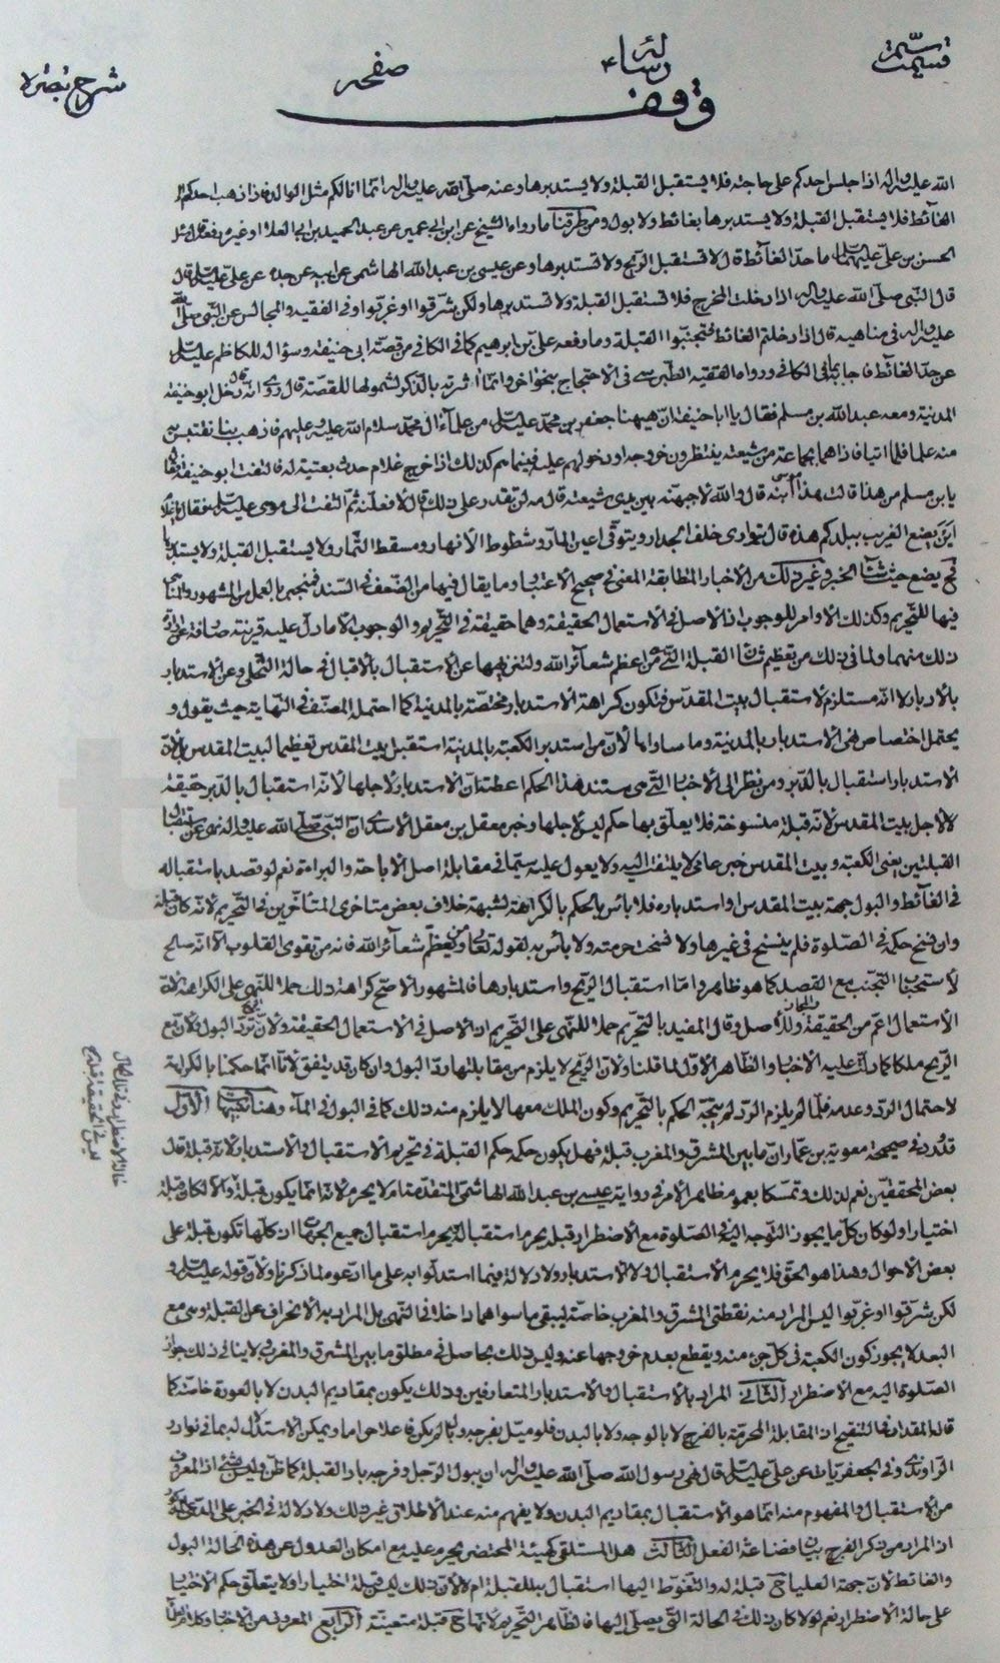 قسيمت سيّمة
رسالۀ ٤
صفحه
شرح تبصره
وقف
الله عليه واله اذا جلس احدكم على حاجته فلا يستقبل القبلة ولا يستدبرها وعنه صلّى الله عليه واله انّما انا لكم مثل الوالد فاذا ذهب احدكم الى
الغائط فلا يستقبل القبلة ولا يستدبرها بغائط ولا بول ومن طرقنا ما رواه الشيخ عن ابن ابى عمير عن عبد الحميد بن ابى العلا او غيره رفعه قال سئل
الحسن بن علىّ عليهما السلام ما حدّ الغائط قال لا تستقبل القبلة ولا تستدبرها ولا تستقبل الريح ولا تستدبرها وعن عيسى بن عبد الله الهاشمى عن ابيه عن جده عن علىّ عليه السلام قال
قال النّبى صلّى الله عليه واله اذا دخلت المخرج فلا تستقبل القبلة ولا تستدبرها ولكن شرّقوا او غرّبوا وفى الفقيه والمجالس عن النّبى صلّى الله
عليه واله فى مناهيه قال اذا دخلتم الغائط فتجنّبوا القبلة وما رفعه علىّ بن ابرهيم كما فى الكافى من قصّة ابى حنيفة وسؤاله للكاظم عليه السلام
عن حدّ الغائط فاجابه فى الكافى ورواه الفقيه الطبرسى فى الاحتجاج بنحو اخر وانّما اثرته بالذكر لشمولها للقصّة قال روى انه دخل ابو حنيفة
المدينة ومعه عبد الله بن مسلم فقال يا ابا حنيفة انّ هيهنا جعفر بن محمّد عليه السلام من علمآء ال محمّد سلام الله عليه وعليهم فاذهب بنا نقتبس
منه علما فلمّا اتيا فاذا هما بجماعة من شيعته ينتظرون خروجه او دخولهم عليه فبينما هم كذلك اذا خرج غلام حدث بعتبة له فالتفت ابو حنيفة فقال
يا بن مسلم من هذا قال هذا موسى ابنه قال والله لاجبهنّه بين يدى شيعته قال مه لن تقدر على ذلك قال لافعلنّه ثمّ التفت الى موسى عليه السلام فقال يا غلام
اين يضع الغريب ببلدكم هذه قال يتوارى خلف الجدار ويتوقّى اعين المارّ وشطوط الانهار ومسقط الثمار ولا يستقبل القبلة ولا يستدبرها
فح يضع حيث شاء الخبر وغير ذلك من الاخبار المتطابقة المعنى فى صحيح الاعتبار وما يقال فيها من الضّعف فى السّند فمنجبر بالعمل من المشهور
فيها للتّحريم وكذلك الاوامر للوجوب اذ الاصل فى الاستعمال الحقيقة وهما حقيقة فى التّحريم والوجوب الا ما دلّ عليه قرينة صارفة عن
ذلك منهما ولما فى ذلك من تعظيم شان القبلة الّتى من اعظم شعآئر الله ولتنزيهها عن الاستقبال بالاقبال فى حالة التّخلى وعن الاستدبار
بالادبار لا انّه مستلزم لاستقبال بيت المقدس فتكون كراهة الاستدبار مختصّة بالمدينة كما احتمله المصنّف فى النّهاية حيث يقول و
يحتمل اختصاص نهى الاستدبار بالمدينة وما ساواها لانّ من استدبر الكعبة بالمدينة استقبل بيت المقدس تعظيما لبيت المقدس
الاستدبار استقبال بالدّبر ومن نظر الى الاخبار الّتى هى مستند هذا الحكم اعطته انّ الاستدبار لاجلها لا انّه استقبال بالدّبر حقيقة
لا لاجل بيت المقدس لانّه قبلة منسوخة فلا يعلّق بها حكم ليس لاجلها وخبر معقل بن معقل الاسدى انّ النّبى صلّى الله عليه واله نهى عن استقبال
القبلتين يعنى الكعبة وبيت المقدس خبر عامى لا يلتفت اليه ولا يعول عليه سيّما فى مقابلة اصل الاباحة والبراءة نعم لو قصد باستقباله
فى الغائط والبول جهة بيت المقدس او استدباره فلا بأس بالحكم بالكراهة لشبهة خلاف بعض متاخرى المتأخّرين فى التّحريم لانّه كان قبلة
وان نسخ حكمه فى الصّلوة فلم ينسخ فى غيرها ولا نسخت حرمته ولا بأس به لقوله تعالى ومن يعظّم شعآئر الله فانه من تقوى القلوب الا انّه
لاستحباب التجنب مع القصد كما هو ظاهر وامّا استقبال الريح واستدبارها فالمشهور الاصح كراهة ذلك حملا للنّهى على الكراهة لانّ
الاستعمال اعمّ من الحقيقة والمجاز وللاصل وقال المفيد بالتّحريم حملا للنّهى على التّحريم اذ الاصل فى الاستعمال الحقيقة ولانّ الرّيح تردّ البول ولانّ مع
الرّيح ملكا كما دلّت عليه الاخبار والظّاهر الاوّل لما قلنا ولانّ الرّيح لا يلزم من مقابلتها ردّ البول وان كان قد يتفق لانّا انّما حكمنا بالكراهة
لاحتمال الردّ وعدمه فلمّا لم يلزم الردّ لم يتّجه الحكم بالتّحريم وكون الملك معها لا يلزم منه ذلك كما فى البول فى المآء وهنا تنبيهات الاوّل
قد ورد فى صحيحة معوية بن عمّار انّ ما بين المشرق والمغرب قبلة فهل يكون حكمه حكم القبلة فى تحريم الاستقبال والاستدبار لانّه قبلة قال
بعض المحققين نعم لذلك وتمسكا بعموم ظاهر الامر فى رواية عيسى بن عبد الله الهاشمى المتقدّمة وقيل لا يحرم لانّه انّما يكون قبلة والا لكان قبلة
اختيارا ولو كان كلّ ما يجوز التّوجه اليه فى الصّلوة مع الاضطرار قبلة يحرم استقباله لحرم استقبال جميع الجهات اذ كلّها تكون قبلة على
بعض الاحوال وهذا هو الحقّ فلا يحرم الاستقبال ولا الاستدبار ولا دلالة فيما استدلّوا به على ما ادعوه لما ذكرنا ولانّ قوله عليه السلام و
لكن شرّقوا او غرّبوا ليس المراد منه نقطتى المشرق والمغرب خاصّة ليبقى ما سواهما داخلا فى النّهى بل المراد به الانحراف عن القبلة وهى مع
البعد لا يجوز كون الكعبة فى كلّ جزء منه ويقطع بعدم خروجها عنه وليس ذلك بحاصل فى مطلق ما بين المشرق والمغرب ولا ينافى ذلك جواز
الصّلوة اليه مع الاضطرار الثّانى المراد بالاستقبال والاستدبار المتعارفين وذلك يكون بمقاديم البدن لا بالعورة خاصّة كما
قاله المقداد فى التنقيح انّ المقابلة المحرّمة بالفرج لا بالوجه ولا بالبدن فلو ميّل بفرجه وبال لم يكن فاعلا حراما ويمكن الاستدلال له بما فى نوادر
الرّاوندى وفى الجعفريّات عن علىّ عليه السلام قال نهى رسول الله صلّى الله عليه واله ان يبول الرّجل وفرجه باد للقبلة كما ظنّ وليس بشئ اذ المعروف
من الاستقبال والمفهوم منه انّما هو الاستقبال بمقاديم البدن ولا يفهم منه عند الاطلاق غير ذلك ولا دلالة فى الخبر على المدّعى
اذ المراد من ذكر الفرج بيان فضاعة الفعل الثّالث هل المستلقى كهيئة المحتضر يحرم عليه مع امكان العدول عن هذه الحالة البول
والغائط لانّ جهة العليا ح قبلة له والتّغوّط اليها استقبال ببول للقبلة ام لا لانّ ذلك ليس قبلة اختيارا ولا يتعلّق حكم الاختيار
على حالة الاضطرار نعم لو لا كان ذلك فى الحالة الّتى يصلّى اليها فالظّاهر التّحريم لانّها ح قبلة متعيّنة الرّابع المعروف من الاخبار وكلام
حالة الاضطرار وفى تلك الحال
ليس فى الحقيقة قبلة